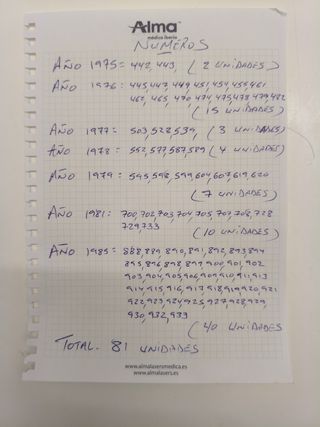 Alma
médica Iberia
NUMEROS
AÑO 1975= 442,443, (2 UNIDADES)
AÑO 1976= 445,447,449,451,454,455,461
462,465,470,474,475,478,479,482
(15 UNIDADES)
AÑO 1977= 503,528,539, (3 UNIDADES)
AÑO 1978= 552,577,587,589 (4 UNIDADES)
AÑO 1979= 595,598,599,604,607,619,620
(7 UNIDADES)
AÑO 1981= 700,702,703,704,705,707,708,728
729,733 (10 UNIDADES)
AÑO 1985= 888,889,890,891,892,893,894
895,896,898,899,900,901,902
903,904,905,906,909,910,911,913
914,915,916,917,918,919,920,921
922,923,924,925,927,928,929,
930,932,939
(40 UNIDADES
TOTAL. 81 UNIDADES
www.almalasersmedica.es
www.almalasers.es